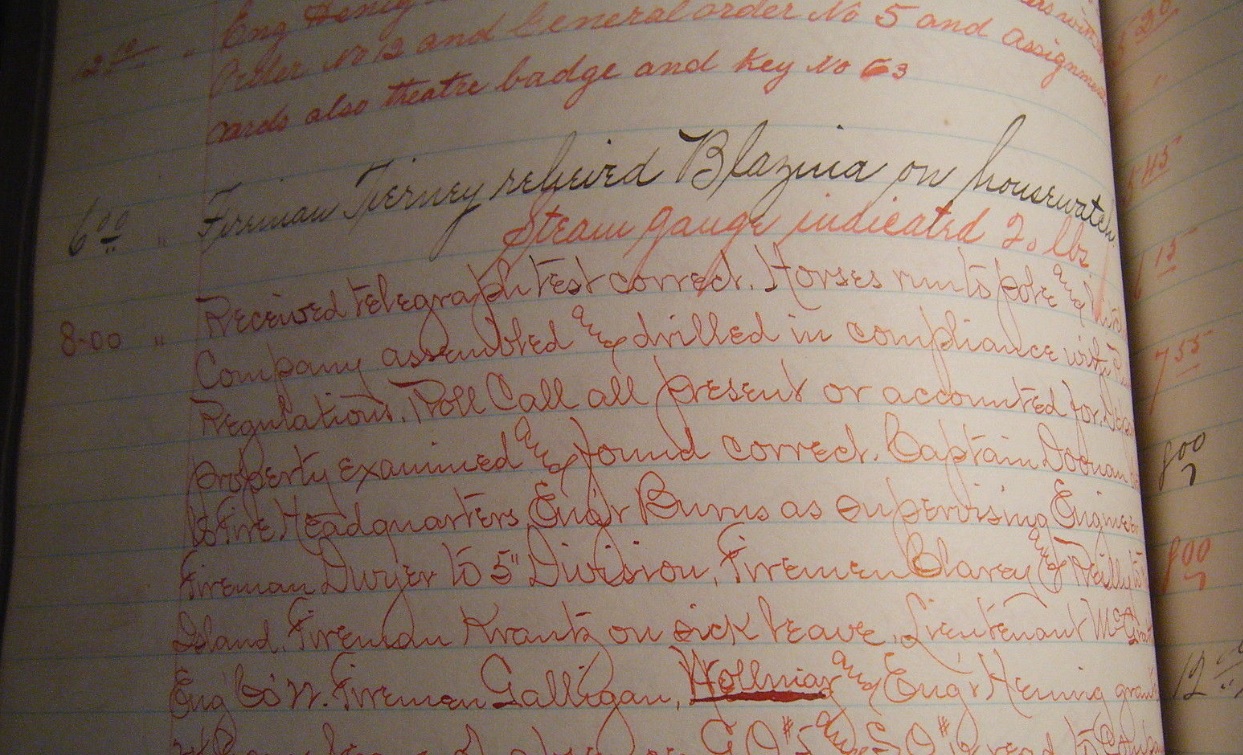 Eng
2.00 " Order No 12 and General order No 5 and assignm
cards also theatre badge and key No 63
6 00 " Fireman Tierney relieved Blazina on housewatch
Steam gauge indicated 20 lbs.
8-00 " Received telegraph test correct. Horses run to pole and
Company assembled and drilled in compliance with
Regulations. Roll Call all present or accounted for.
property examined and found correct. Captain Doonan
to Fire Headquarters Eng'r Burns as Supervising Engineer
Fireman Dwyer to 5" Division, Firemen Blarey & Reilly to
Island. Fireman Krantz on sick leave. Lieutenant
Eng Co Firemen Galligan, Hollmar and Eng'r Hennig
G.O.# and S.O.# read
5 45
7 55
8 00
8 00
12